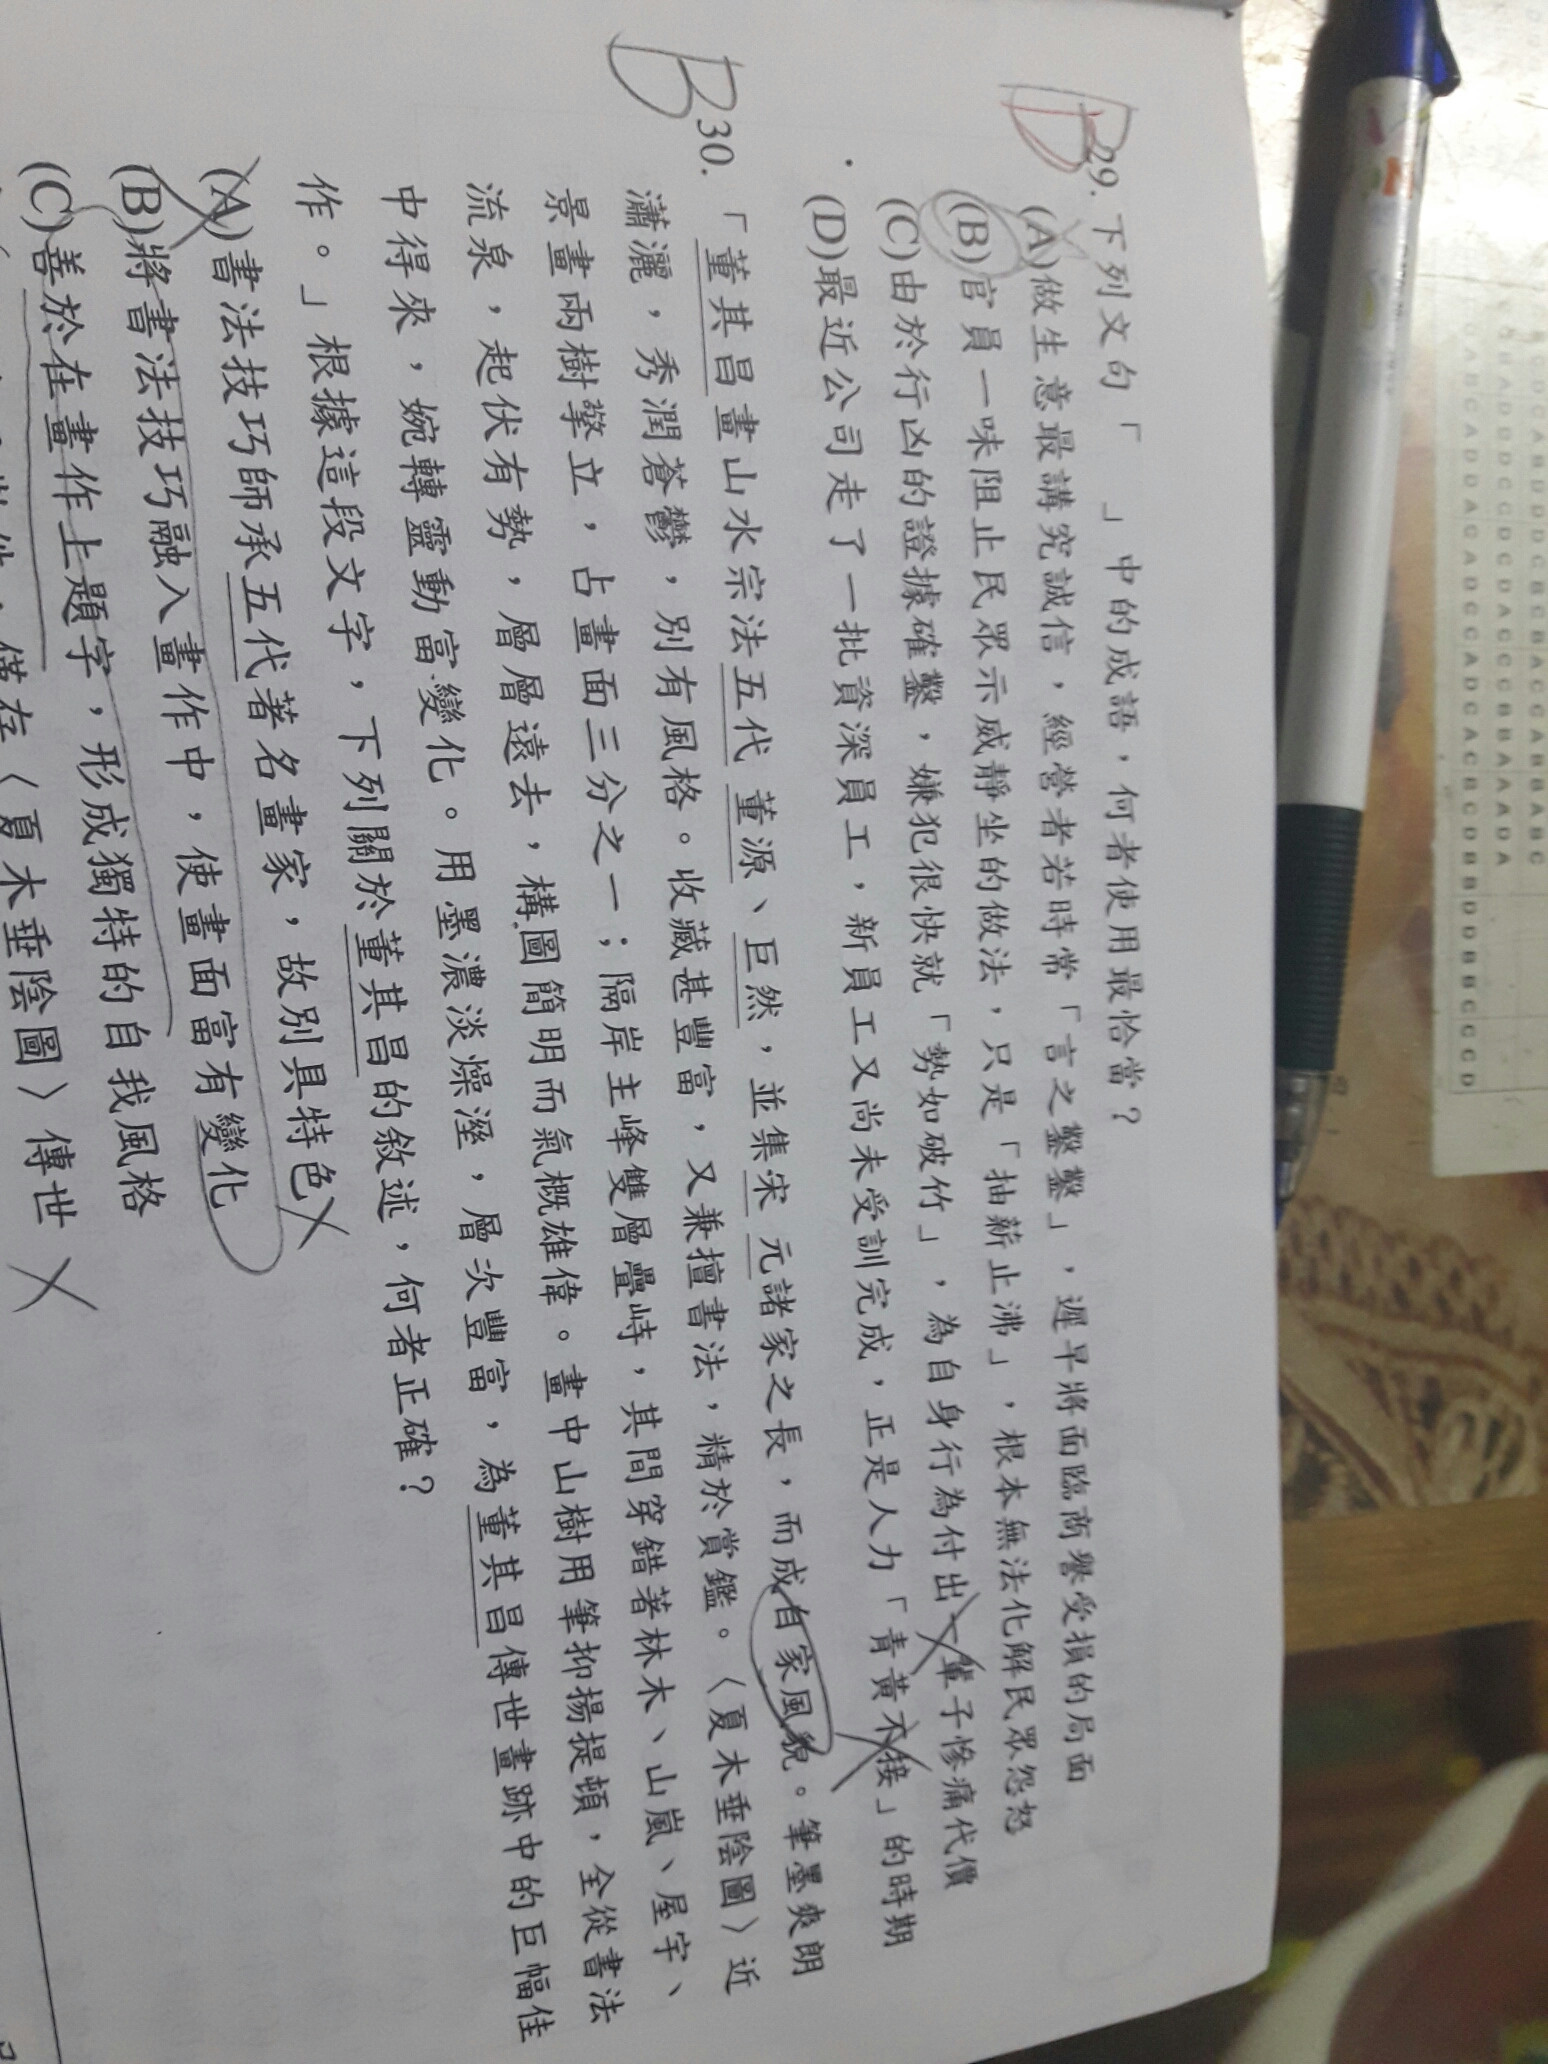 B 29. 下列文句「　」中的成語，何者使用最恰當？
(A)做生意最講究誠信，經營者若時常「言之鑿鑿」，遲早將面臨商譽受損的局面
(B)官員一味阻止民眾示威靜坐的做法，只是「抽薪止沸」，根本無法化解民眾怨怒
(C)由於行凶的證據確鑿，嫌犯很快就「勢如破竹」，為自身行為付出一輩子慘痛代價
(D)最近公司走了一批資深員工，新員工又尚未受訓完成，正是人力「青黃不接」的時期
B 30.「董其昌畫山水宗法五代 董源、巨然，並集宋 元諸家之長，而成自家風貌。筆墨爽朗
瀟灑，秀潤蒼鬱，別有風格。收藏甚豐富，又兼擅書法，精於賞鑑。〈夏木垂陰圖〉近
景畫兩樹擎立，占畫面三分之一；隔岸主峰雙層疊峙，其間穿錯著林木、山嵐、屋宇、
流泉，起伏有勢，層層遠去，構圖簡明而氣概雄偉。畫中山樹用筆抑揚提頓，全從書法
中得來，婉轉靈動富變化。用墨濃淡燥溼，層次豐富，為董其昌傳世畫跡中的巨幅佳
作。」根據這段文字，下列關於董其昌的敘述，何者正確？
(A)書法技巧師承五代著名畫家，故別具特色
(B)將書法技巧融入畫作中，使畫面富有變化
(C)善於在畫作上題字，形成獨特的自我風格
僅存〈夏木垂陰圖〉傳世